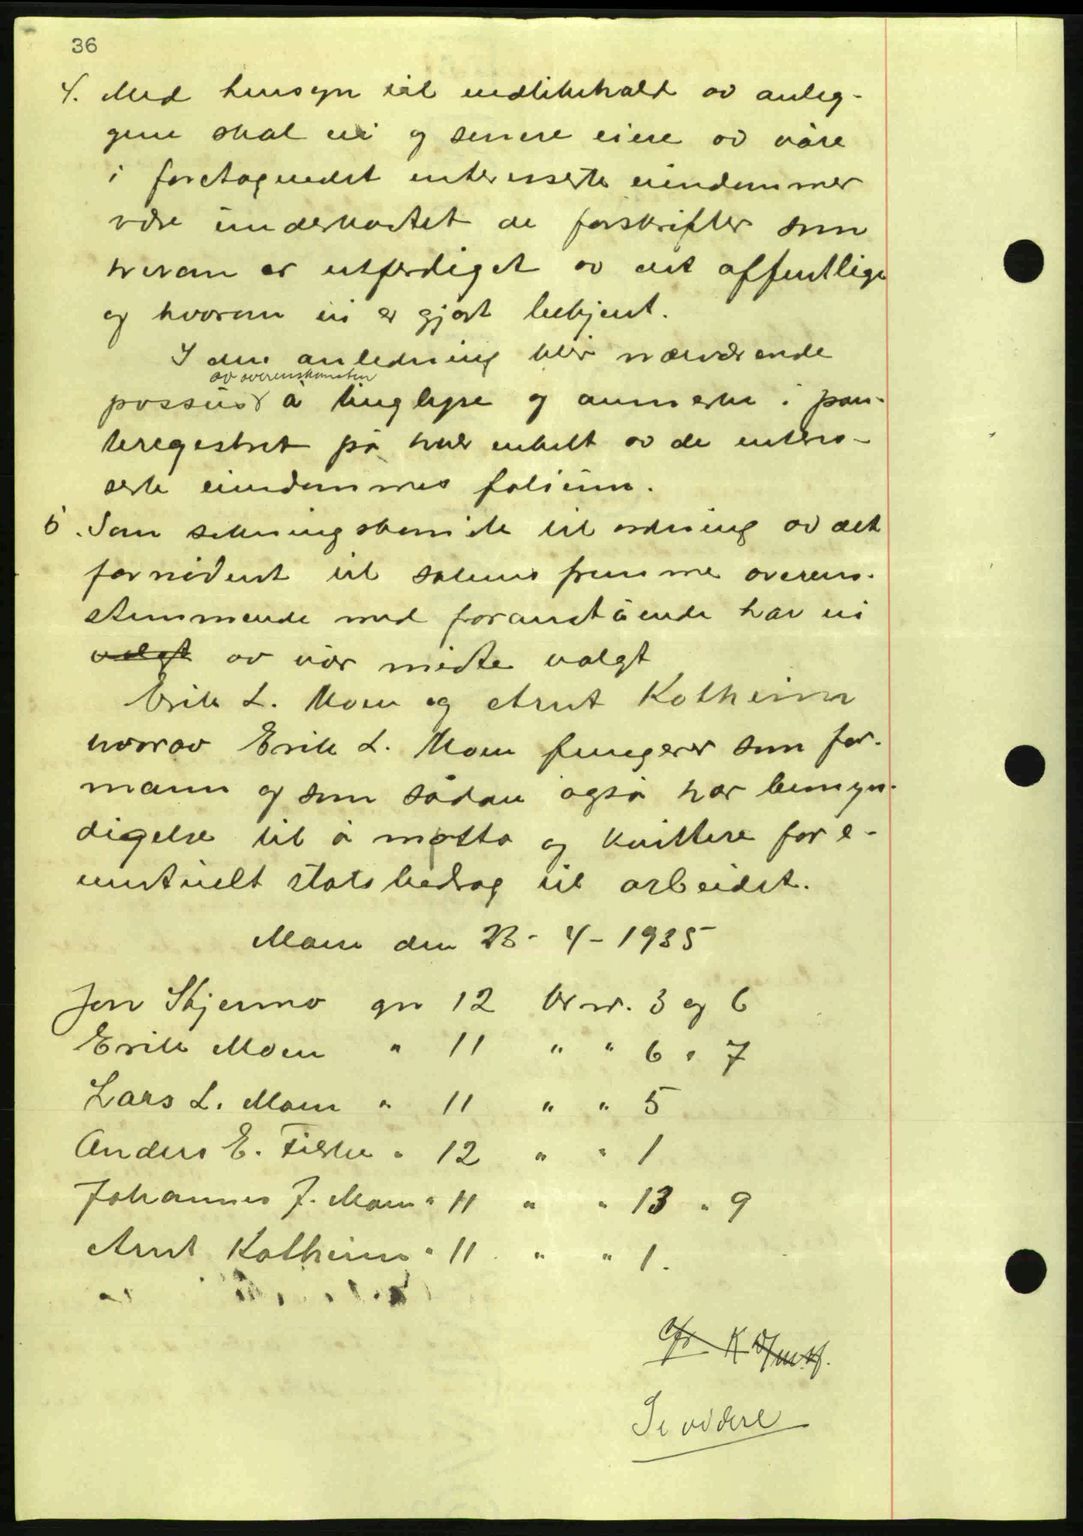 36
4. Med hensyn til vedlikehald av anleg-
gene skal vi og senere eiere av våre
i foretagendet interesserte eiendommer
være underkastet de forskrifter som
herom er utferdiget av det offentlige
og hvorom vi er gjort bekjent.
I den anledning blir nærværende
av overenskomsten
passus å tinglyse og anmerke i pan-
teregistret på hver enkelt av de interes-
serte eiendommes folium.
5. Som setningskomite til ordning av det
fornødent til sakens fremme overens-
stemmende med foranstående har vi
valgt av vår midte valgt
Erik L. Moen og Arnt Kolheim
hvorav Erik L. Moen fungerer som for-
mann og som sådan også har bemyn-
digelse til å motta og kvittere for e-
ventuelt statsbedrag til arbeidet.
Moen den 23-4-1935
Jon Skjermo gn 12 br nr. 3 og 6
Erik Moen " 11 " " 6 " 7
Lars L. Moen " 11 " " 5
Anders E. Fiske " 12 " " 1
Johannes J. Moen " 11 " " 13 " 9
Arnt Kolheim " 11 " " 1.
Se videre